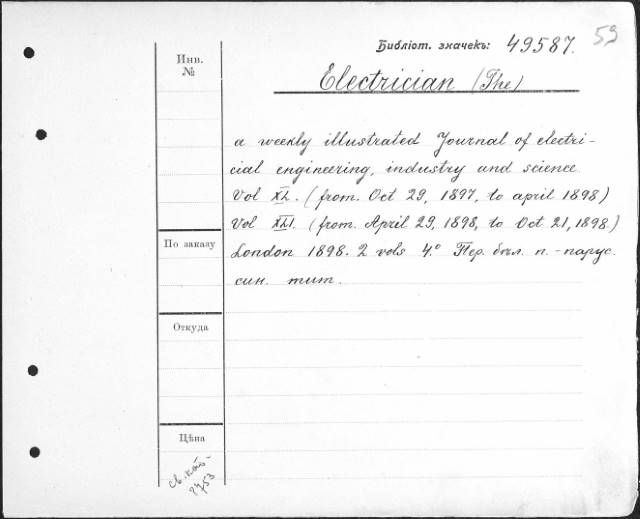 Библіот. значекъ: 49587. 59
Инв.
№
Electrician (The)
a weekly illustrated Journal of electri-
cial engineering, industry and science
Vol XL. (from. Oct 29, 1897, to april 1898)
Vol XLI. (from. April 29, 1898, to Oct 21, 1898.)
По заказу
London 1898. 2 vols 4.° Пер. бѣл. п.-парус.
син. тит.
Откуда
Цѣна
св. кат-
2753